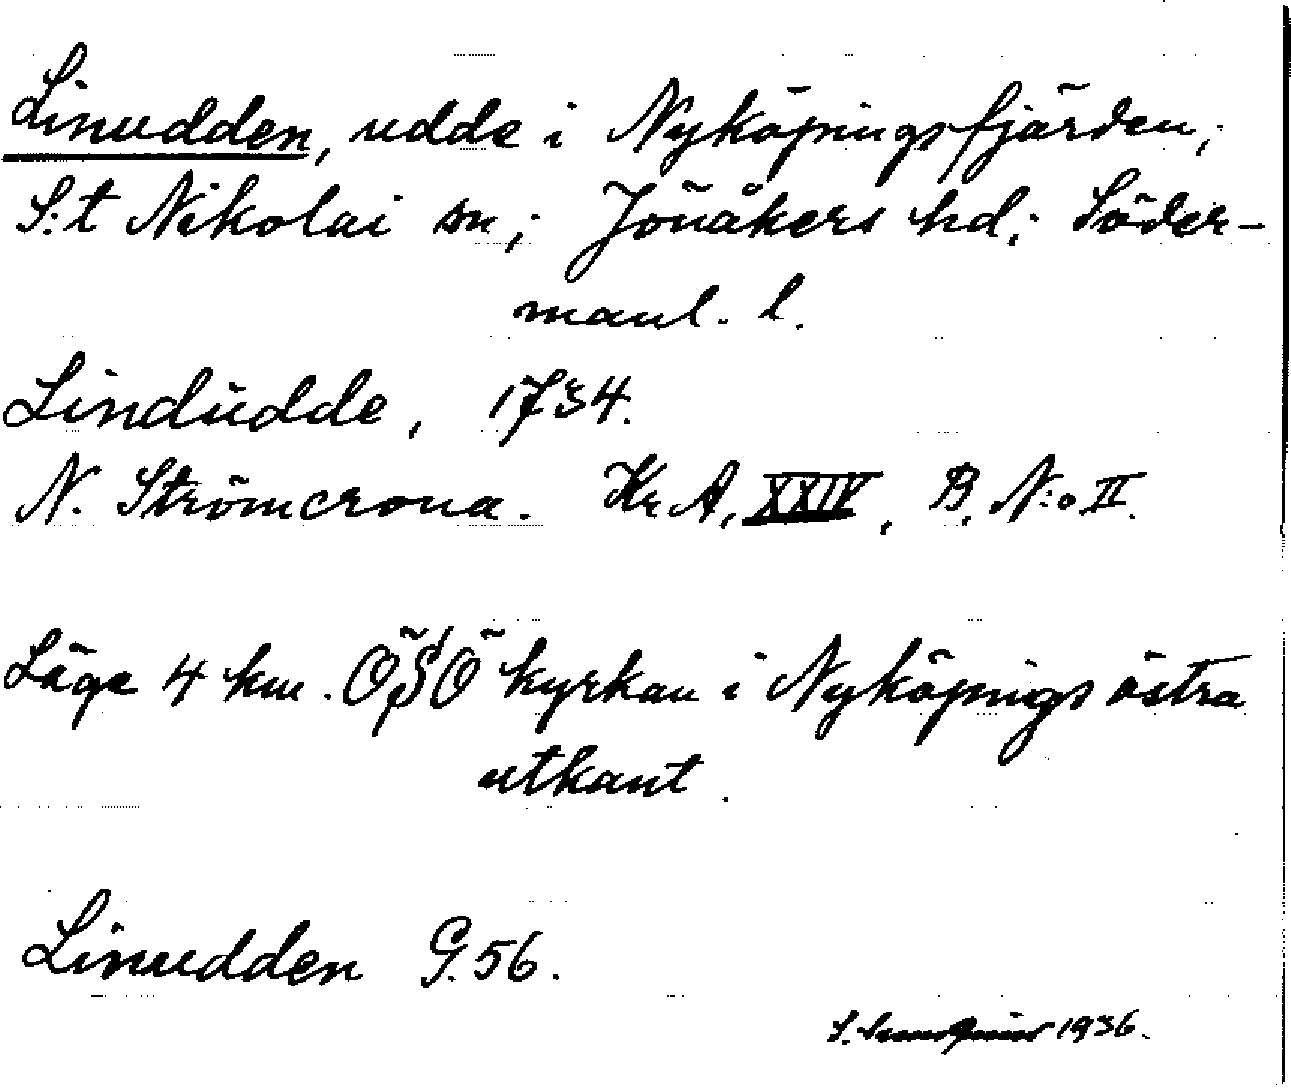 Linudden, udde i Nyköpingsfjärden;
S:t Nikolai sn; Jönåkers hd; Söder-
manl. l.
Lindudde, 1734.
N. Strömcrona. Kr A, XXIV, B, N:o II.
Läge 4 km. ÖSÖ kyrkan i Nyköpings östra
utkant.
Linudden G. 56.
S. 1936.